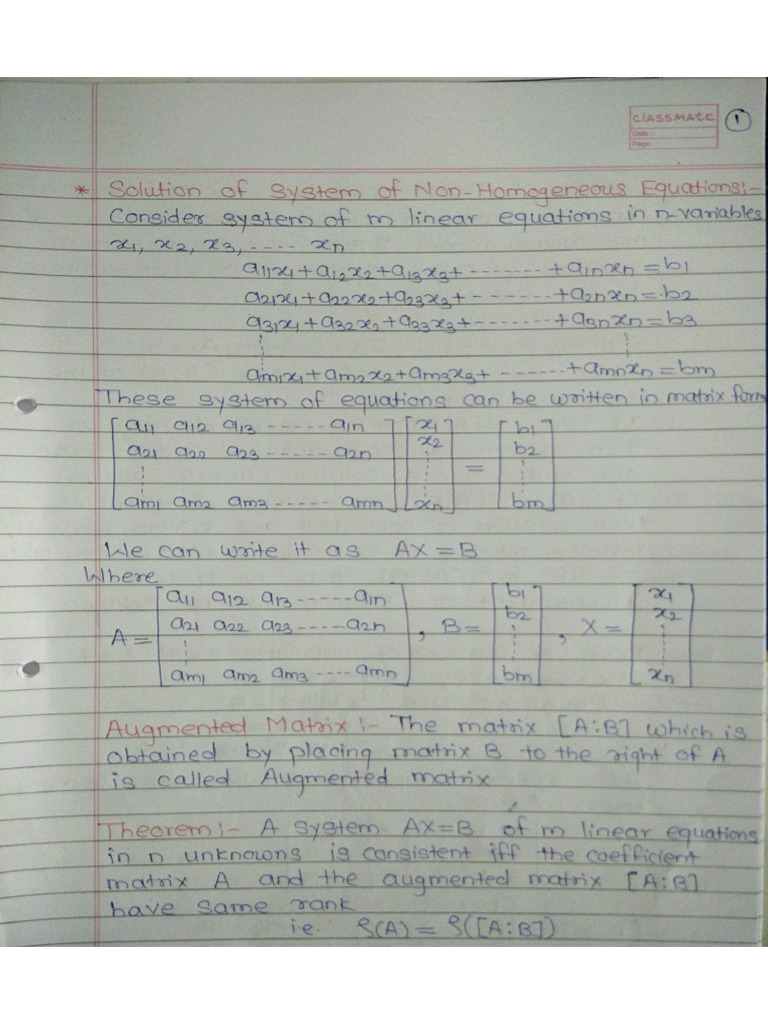 classmate
Date
Page
1
* Solution of System of Non-Homogeneous Equations:-
Consider system of m linear equations in n-variables
x1, x2, x3, ..... xn
a11x1+a12x2+a13x3+-------+a1nxn=b1
a21x1+a22x2+a23x3+-------+a2nxn=b2
a31x1+a32x2+a33x3+-------+a3nxn=b3
am1x1+am2x2+am3x3+-------+amnxn=bm
These system of equations can be written in matrix form
[a11 a12 a13 ----- a1n] [x1] [b1]
[a21 a22 a23 ----- a2n] [x2] = [b2]
[am1 am2 am3 ----- amn] [xn] [bm]
We can write it as AX=B
Where
A= [a11 a12 a13 ----- a1n], B= [b1], X= [x1]
[a21 a22 a23 ----- a2n] [b2] [x2]
[am1 am2 am3 ---- amn] [bm] [xn]
Augmented Matrix:- The matrix [A:B] which is
obtained by placing matrix B to the right of A
is called Augmented matrix
Theorem:- A system AX=B of m linear equations
in n unknowns is consistent iff the coefficient
matrix A and the augmented matrix [A:B]
have same rank
i.e. ρ(A)= ρ([A:B])